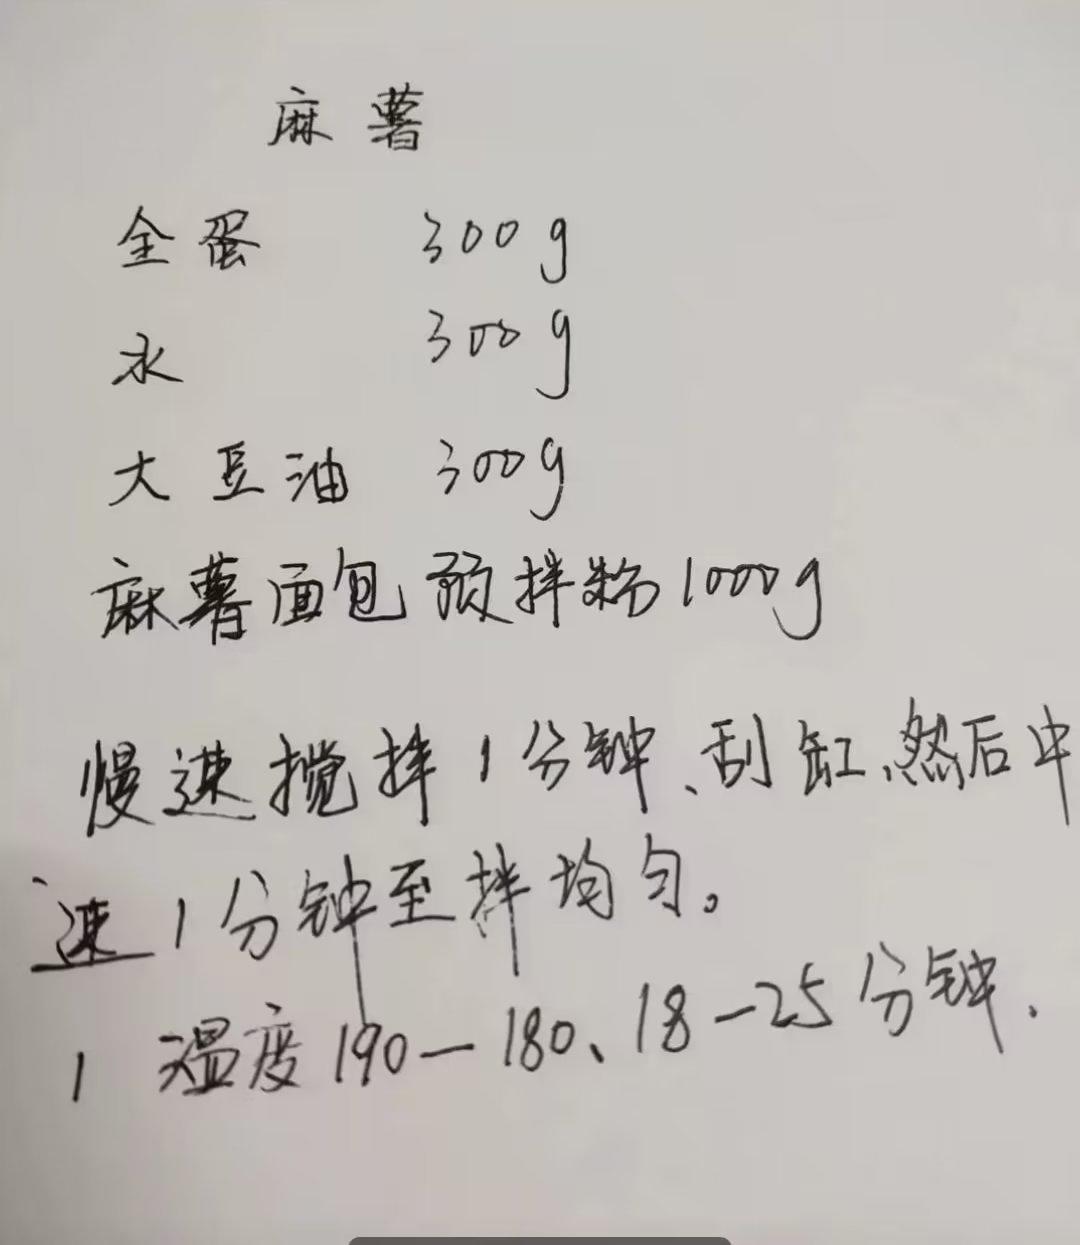 麻薯
全蛋 300g
水 300g
大豆油 300g
麻薯面包预拌粉1000g
慢速搅拌1分钟、刮缸、然后中
速1分钟至拌均匀。
1 温度190-180、18-25分钟.